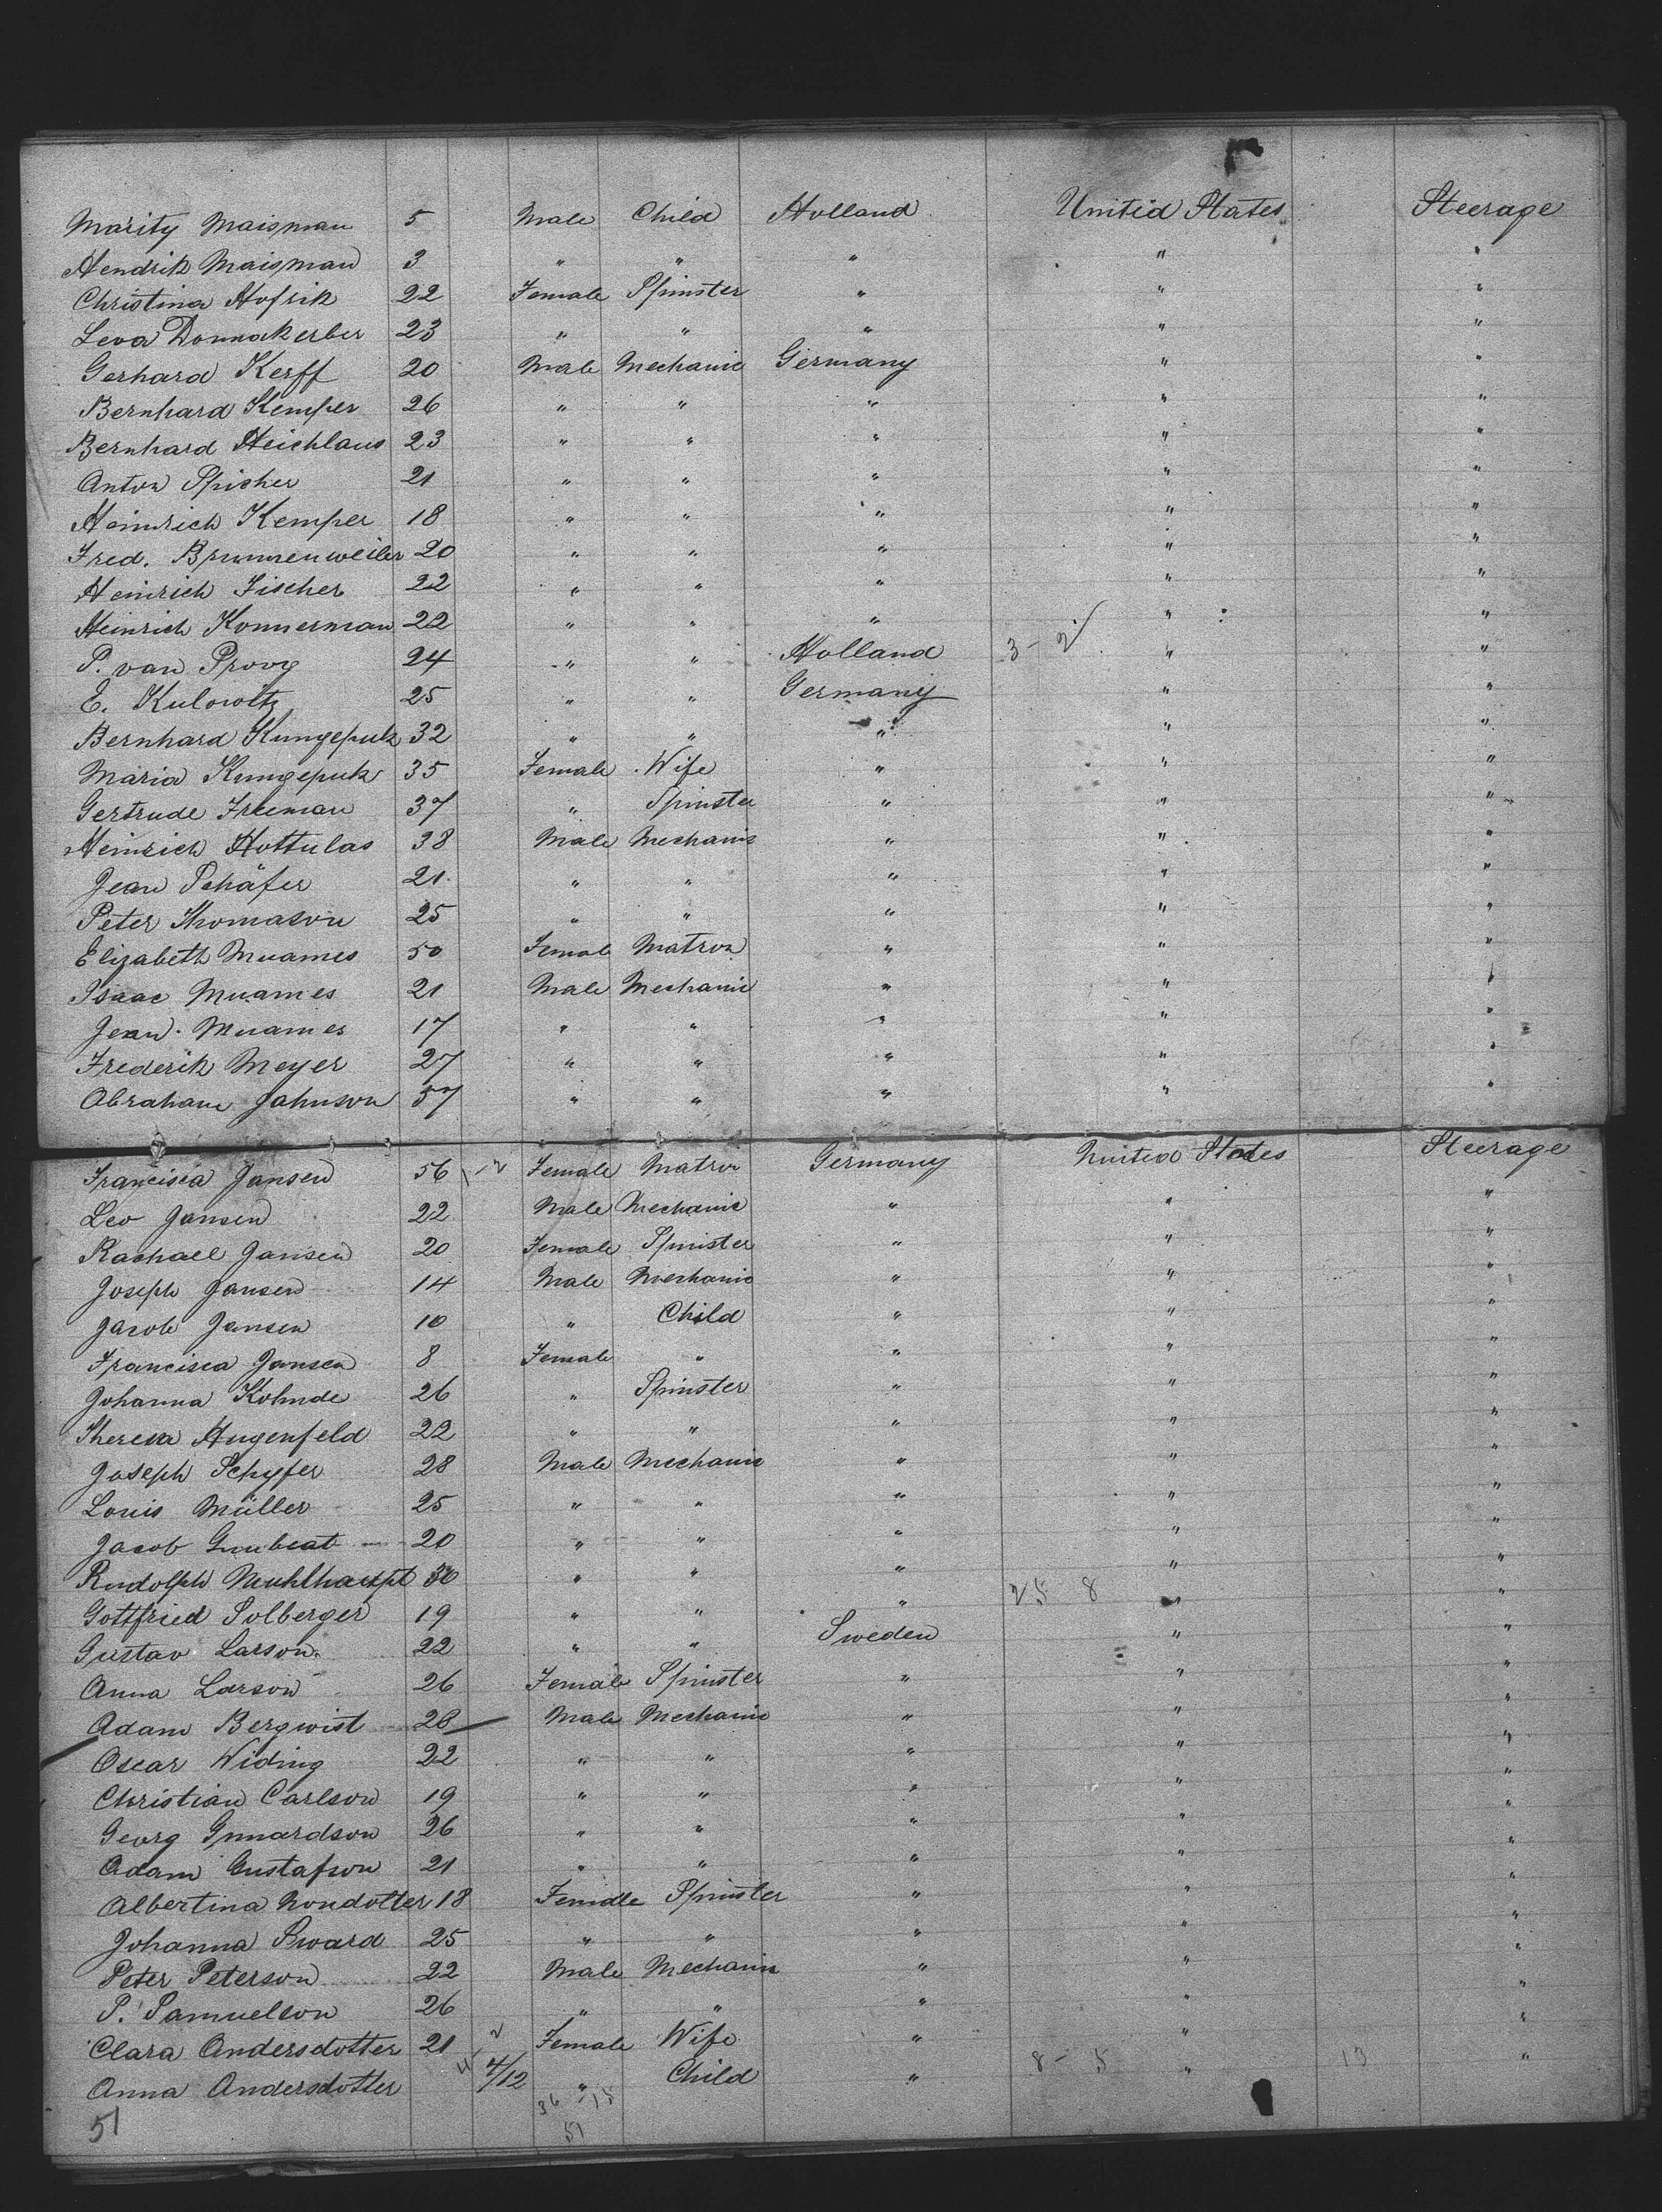 Marity Maisman 5 Male Child Holland United States Steerage
Hendrik Maisman 3 " " " " "
Christina Hofrik 22 Female Spinster " " "
Leva Donnakerber 23 " " " " "
Gerhard Kerff 20 Male Mechanic Germany " "
Bernhard Kemper 26 " " " " "
Bernhard Heichlaus 23 " " " " "
Anton Spicher 21 " " " " "
Heinrich Kemper 18 " " " " "
Fred. Brunnenweiler 20 " " " " "
Heinrich Fischer 22 " " " " "
Heinrich Konnerman 22 " " " " "
P. van Proog 24 " " Holland 3 - 2 " "
E. Kulowitz 25 " " Germany " "
Bernhard Kungepuk 32 " " " " "
Maria Kungepuk 35 Female Wife " " "
Gertrude Freeman 37 " Spinster " " "
Heinrich Hottulas 38 Male Mechanic " " "
Jean Schäfer 21 " " " " "
Peter Thomason 25 " " " " "
Elizabeth Muames 50 Female Matron " " "
Isaac Muames 21 Male Mechanic " " "
Jean Muames 17 " " " " "
Frederik Meyer 27 " " " " "
Abraham Jahnson 57 " " " " "
Francisca Jansen 56 1-2 Female Matron Germany United States Steerage
Leo Jansen 22 Male Mechanic " " "
Rachael Jansen 20 Female Spinster " " "
Joseph Jansen 14 Male Mechanic " " "
Jacob Jansen 10 " Child " " "
Francisca Jansen 8 Female " " " "
Johanna Kohnde 26 " Spinster " " "
Theresa Hugenfeld 22 " " " " "
Joseph Schyfer 28 Male Mechanic " " "
Louis Müller 25 " " " " "
Jacob 20 " " " " "
Rudolph Muhlhaupt 30 " " " " "
Gottfried Solberger 19 " " " 25 8 " "
Gustav Larson 22 " " Sweden " "
Anna Larson 26 Female Spinster " " "
Adam Bergwist 28 Male Mechanic " " "
Oscar Widing 22 " " " " "
Christian Carlson 19 " " " " "
Georg Gunnardson 26 " " " " "
Adam Gustafson 21 " " " " "
Albertina Nondotter 18 Female Spinster " " "
Johanna Sward 25 " " " " "
Peter Peterson 22 Male Mechanic " " "
P. Samuelson 26 " " " " "
Clara Andersdotter 21 Female Wife " " "
Anna Andersdotter 4/12 " Child " 8 - 5 " 13 "
36 - 15
51 51